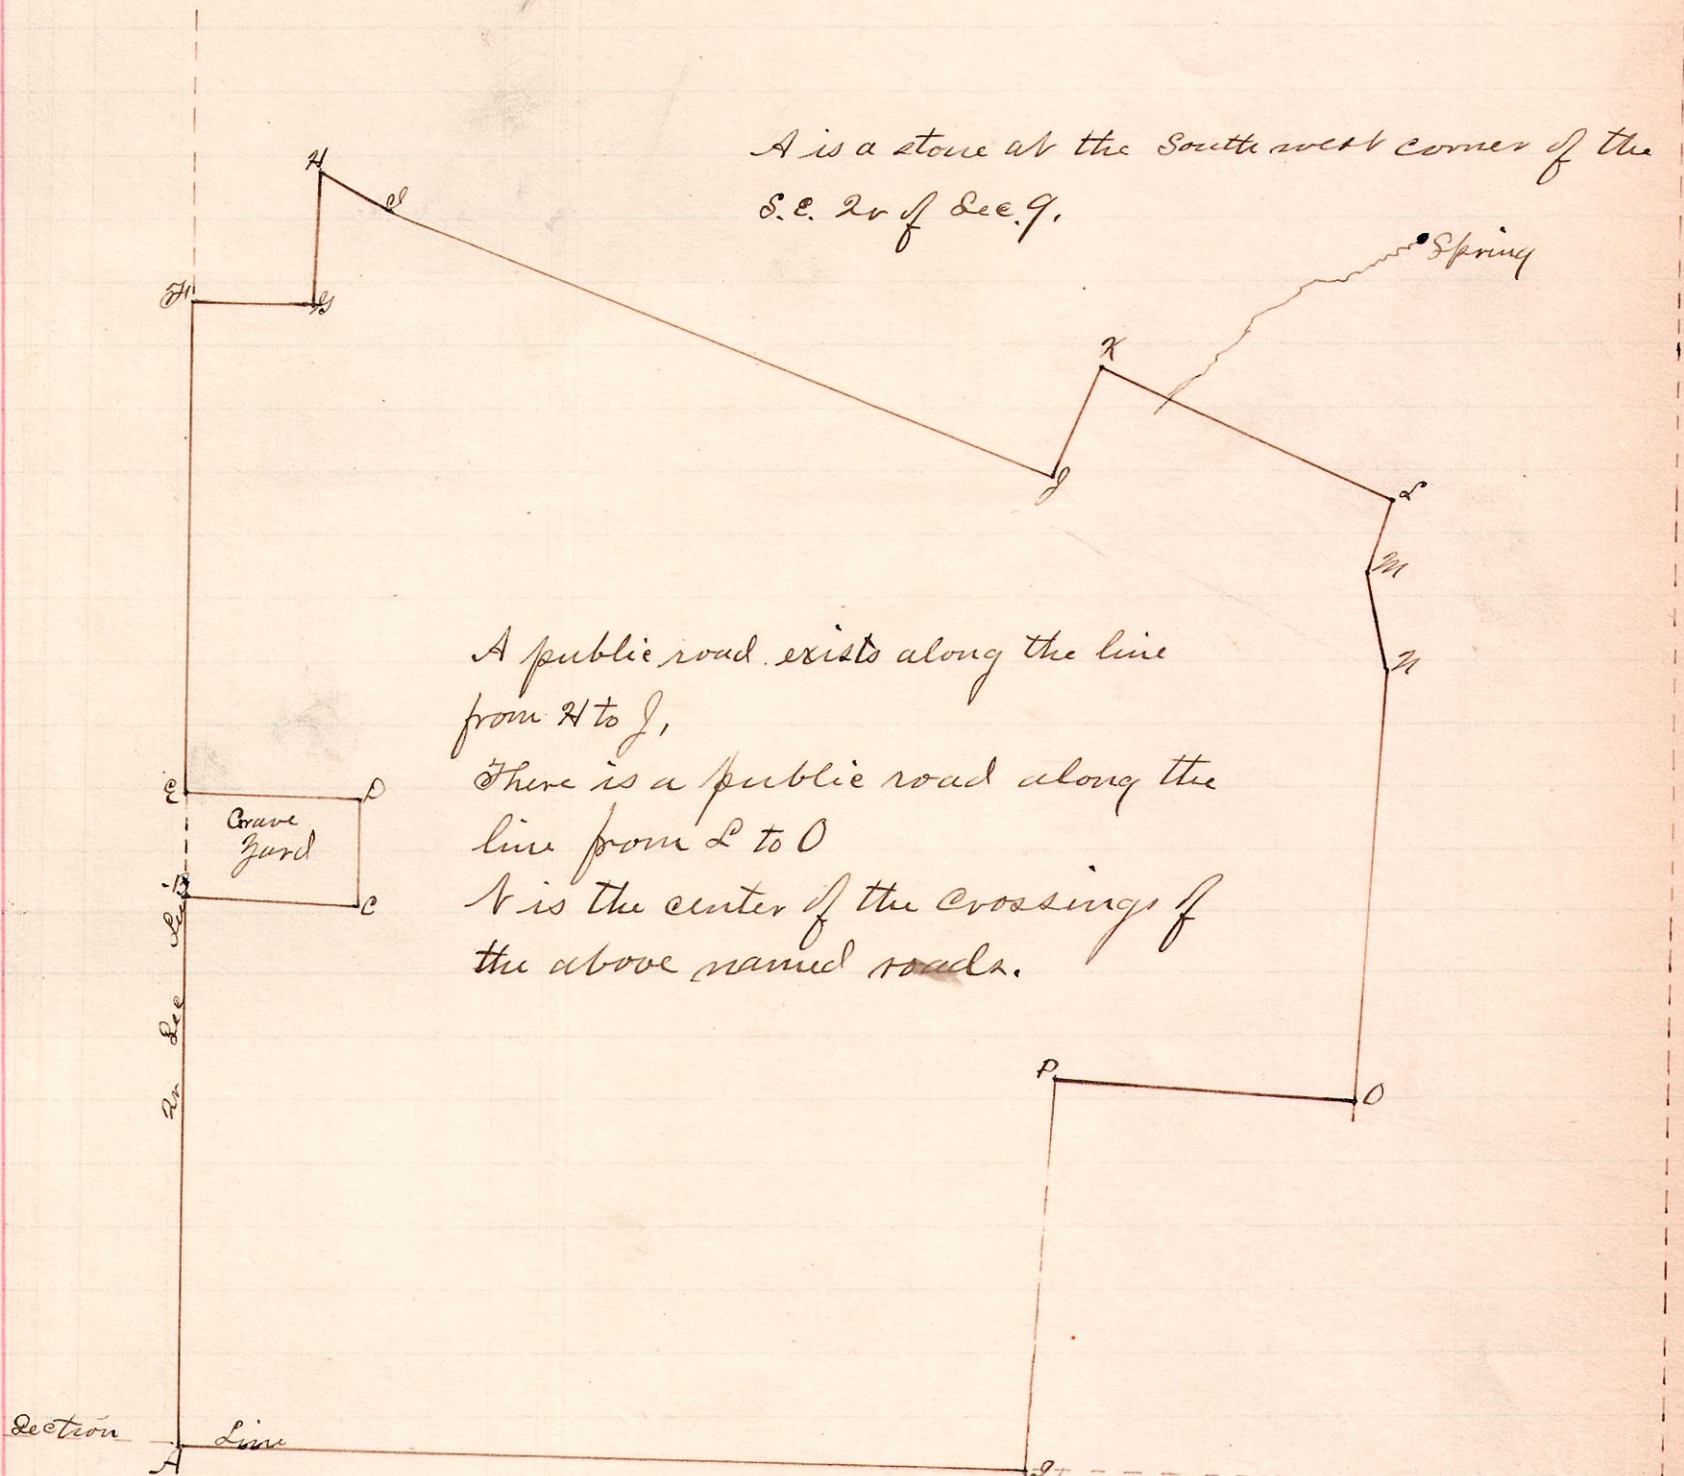 A is a stone at the South west corner of the
S.E. Qr of Sec. 9.
Spring
H
I
F
G
K
J
L
M
N
A public road exists along the line
from H to J,
There is a public road along the
line from L to O
N is the center of the crossings of
the above named roads.
E
D
Grave
Yard
B
C
Qr Sec
P
O
Section Line
A
Q